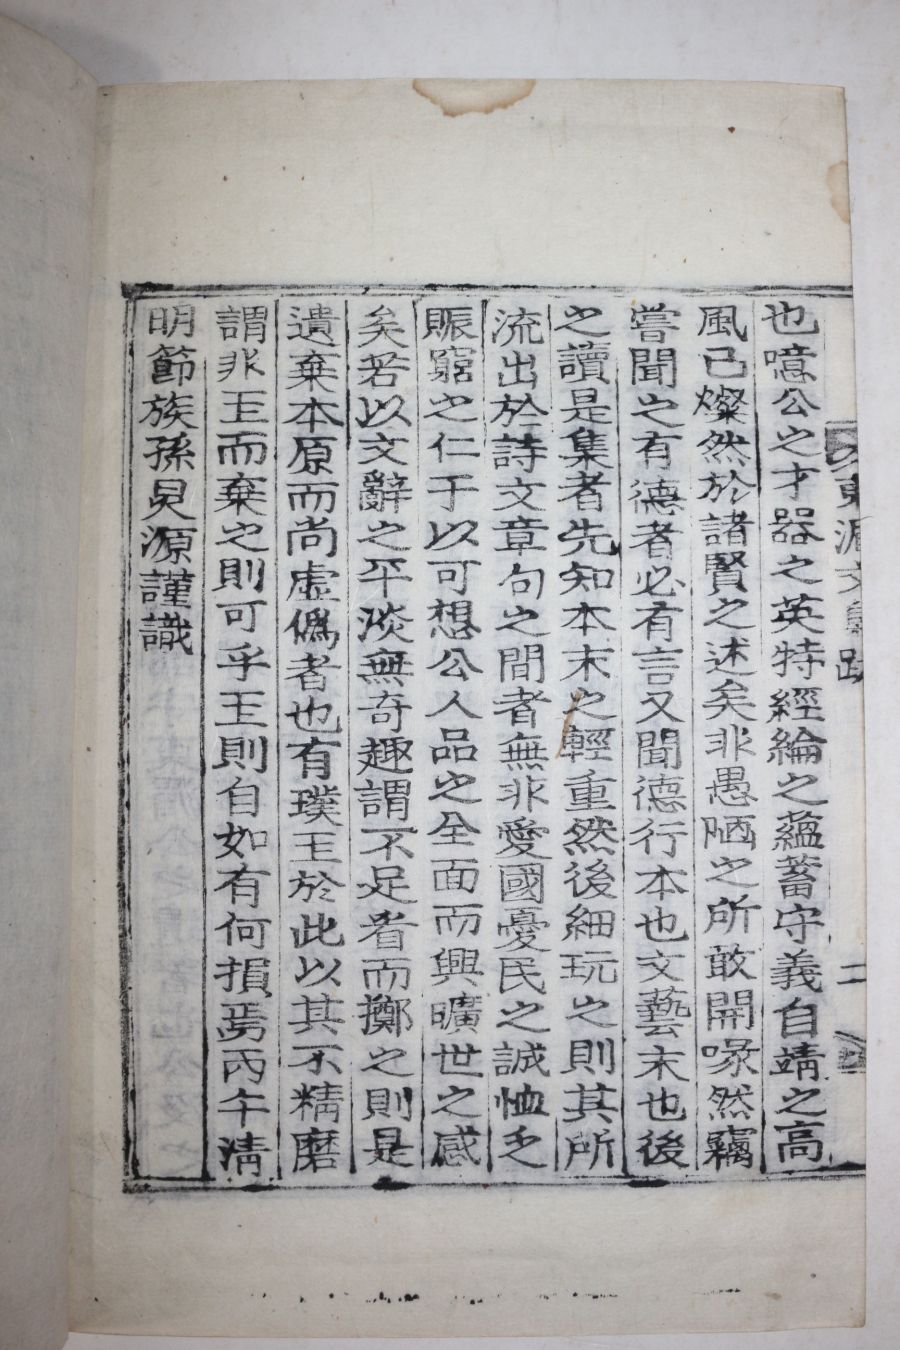 也噫公之才器之英特經綸之蘊蓄守義自靖之高
風已燦然於諸賢之述矣非愚陋之所敢開喙然竊
嘗聞之有德者必有言又聞德行本也文藝末也後
之讀是集者先知本末之輕重然後細玩之則其所
流出於詩文章句之間者無非愛國憂民之誠恤乏
賑窮之仁于以可想公人品之全面而興曠世之感
矣若以文辭之平淡無奇趣謂不足看而擲之則是
遺棄本原而尚虛僞者也有璞玉於此以其不精磨
謂非玉而棄之則可乎玉則自如有何損焉丙午淸
明節族孫炅源謹識
二